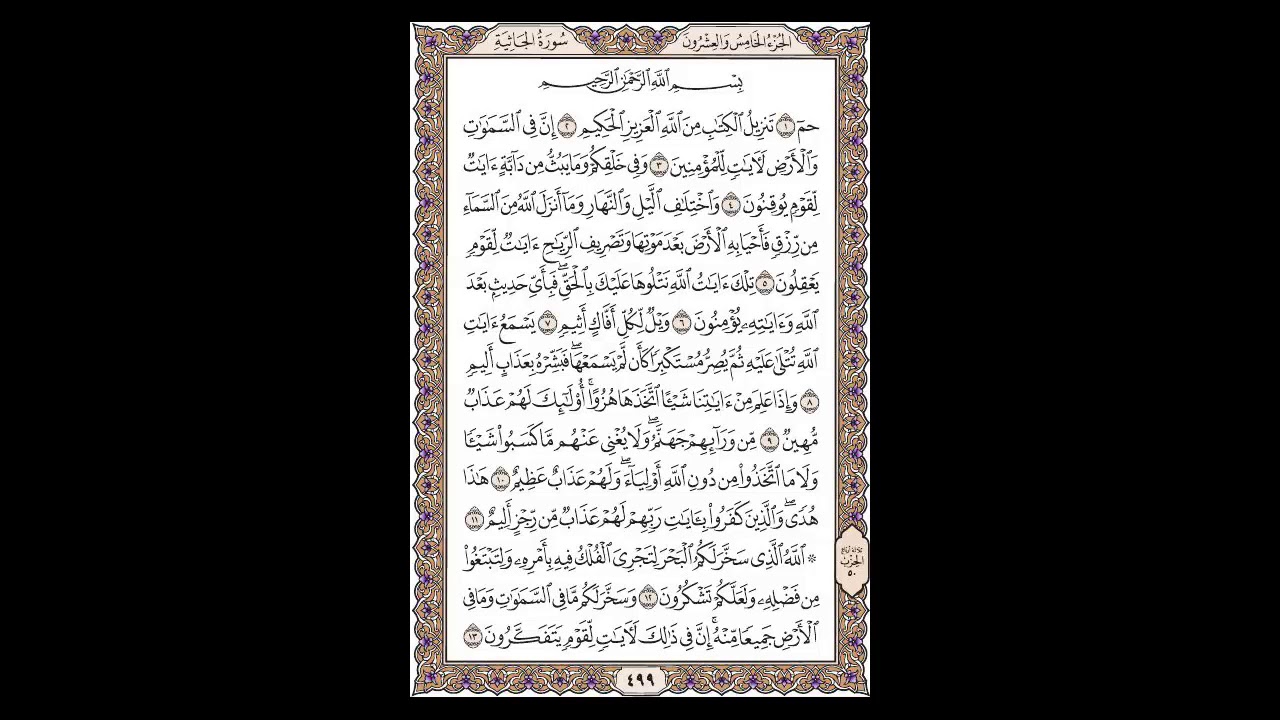 الجزء الخامس والعشرون
سورة الجاثية
بِسْمِ ٱللَّهِ ٱلرَّحْمَٰنِ ٱلرَّحِيمِ
حمٓ ١ تَنزِيلُ ٱلْكِتَٰبِ مِنَ ٱللَّهِ ٱلْعَزِيزِ ٱلْحَكِيمِ ٢ إِنَّ فِى ٱلسَّمَٰوَٰتِ
وَٱلْأَرْضِ لَـَٔايَٰتٍ لِّلْمُؤْمِنِينَ ٣ وَفِى خَلْقِكُمْ وَمَا يَبُثُّ مِن دَآبَّةٍ ءَايَٰتٌ
لِّقَوْمٍ يُوقِنُونَ ٤ وَٱخْتِلَٰفِ ٱلَّيْلِ وَٱلنَّهَارِ وَمَآ أَنزَلَ ٱللَّهُ مِنَ ٱلسَّمَآءِ
مِن رِّزْقٍ فَأَحْيَا بِهِ ٱلْأَرْضَ بَعْدَ مَوْتِهَا وَتَصْرِيفِ ٱلرِّيَٰحِ ءَايَٰتٌ لِّقَوْمٍ
يَعْقِلُونَ ٥ تِلْكَ ءَايَٰتُ ٱللَّهِ نَتْلُوهَا عَلَيْكَ بِٱلْحَقِّ ۖ فَبِأَىِّ حَدِيثٍۭ بَعْدَ
ٱللَّهِ وَءَايَٰتِهِۦ يُؤْمِنُونَ ٦ وَيْلٌ لِّكُلِّ أَفَّاكٍ أَثِيمٍ ٧ يَسْمَعُ ءَايَٰتِ
ٱللَّهِ تُتْلَىٰ عَلَيْهِ ثُمَّ يُصِرُّ مُسْتَكْبِرًا كَأَن لَّمْ يَسْمَعْهَا ۖ فَبَشِّرْهُ بِعَذَابٍ أَلِيمٍ
٨ وَإِذَا عَلِمَ مِنْ ءَايَٰتِنَا شَيْـًٔا ٱتَّخَذَهَا هُزُوًا ۚ أُو۟لَٰٓئِكَ لَهُمْ عَذَابٌ
مُّهِينٌ ٩ مِّن وَرَآئِهِمْ جَهَنَّمُ ۖ وَلَا يُغْنِى عَنْهُم مَّا كَسَبُوا۟ شَيْـًٔا
وَلَا مَا ٱتَّخَذُوا۟ مِن دُونِ ٱللَّهِ أَوْلِيَآءَ ۖ وَلَهُمْ عَذَابٌ عَظِيمٌ ١٠ هَٰذَا
هُدًى ۖ وَٱلَّذِينَ كَفَرُوا۟ بِـَٔايَٰتِ رَبِّهِمْ لَهُمْ عَذَابٌ مِّن رِّجْزٍ أَلِيمٌ ١١
۞ ٱللَّهُ ٱلَّذِى سَخَّرَ لَكُمُ ٱلْبَحْرَ لِتَجْرِىَ ٱلْفُلْكُ فِيهِ بِأَمْرِهِۦ وَلِتَبْتَغُوا۟
مِن فَضْلِهِۦ وَلَعَلَّكُمْ تَشْكُرُونَ ١٢ وَسَخَّرَ لَكُم مَّا فِى ٱلسَّمَٰوَٰتِ وَمَا فِى
ٱلْأَرْضِ جَمِيعًا مِّنْهُ ۚ إِنَّ فِى ذَٰلِكَ لَـَٔايَٰتٍ لِّقَوْمٍ يَتَفَكَّرُونَ ١٣
ثلاثة أرباع
الحزب
٥٠
٤٩٩